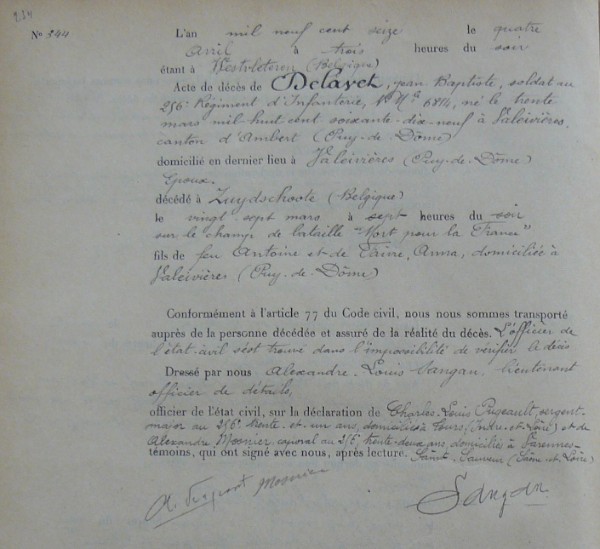 Nº 244
L'an mil neuf cent seize le quatre
Avril à trois heures du soir
étant à Westvleteren (Belgique)
Acte de décès de Delayet, Jean Baptiste, soldat au
256e Régiment d'Infanterie, né le trente
mars mil-huit-cent soixante-dix-neuf à Valcivières
canton d'Ambert (Puy-de-Dôme)
domicilié en dernier lieu à Valcivières (Puy-de-Dôme)
Epoux
décédé à Zuydschoote (Belgique)
le vingt sept mars à sept heures du soir
sur le champ de bataille "Mort pour la France"
fils de feu Antoine et de Anna, domiciliée à
Valcivières (Puy-de-Dôme)
Conformément à l'article 77 du Code civil, nous nous sommes transporté
auprès de la personne décédée et assuré de la réalité du décès. L'officier de
l'état-civil s'est trouvé dans l'impossibilité de vérifier le décès
Dressé par nous Alexandre Louis Sangan, lieutenant
officier de détails,
officier de l'état civil, sur la déclaration de Charles Louis sergent-
major au 256e trente-et-un ans, domicilié à Tours (Indre-et-Loire) et de
Alexandre Mosnier, caporal au trente-deux ans, domicilié à Varennes-
témoins, qui ont signé avec nous, après lecture. Saint-Sauveur (Saône et Loire)
Mosnier
Sangan